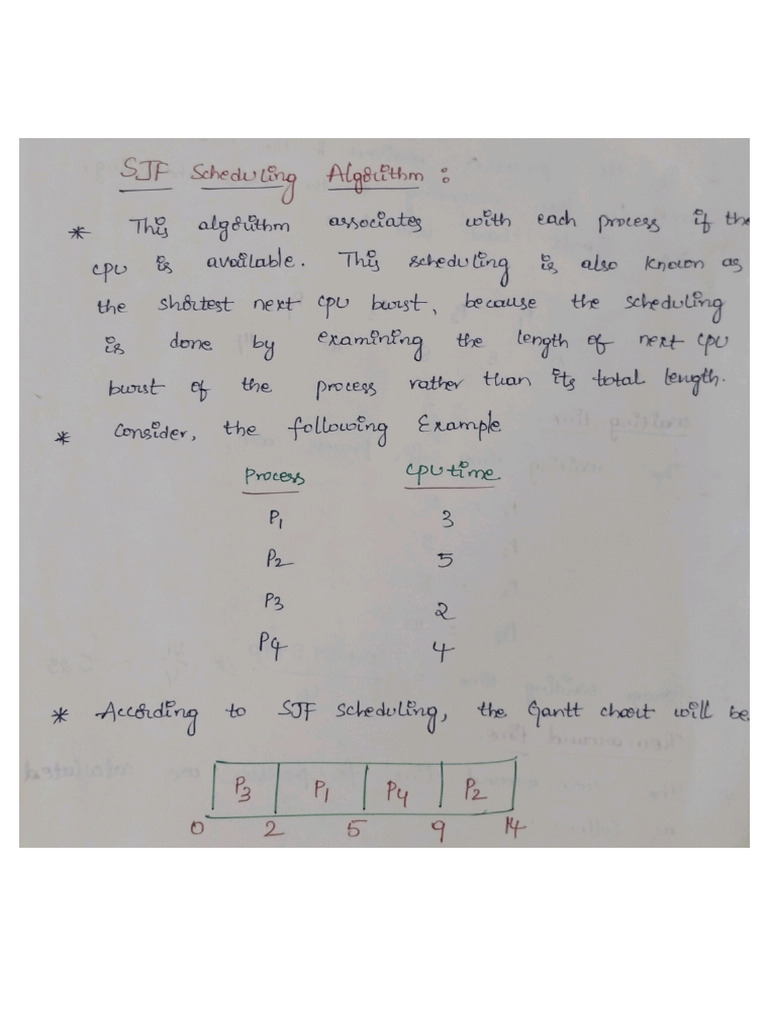 SJF Scheduling Algorithm :
* This algorithm associates with each process if the
CPU is available. This scheduling is also known as
the shortest next CPU burst, because the scheduling
is done by examining the length of next CPU
burst of the process rather than its total length.
* Consider, the following Example
Process CPU time
P1 3
P2 5
P3 2
P4 4
* According to SJF Scheduling, the Gantt chart will be
P3 P1 P4 P2
0 2 5 9 14